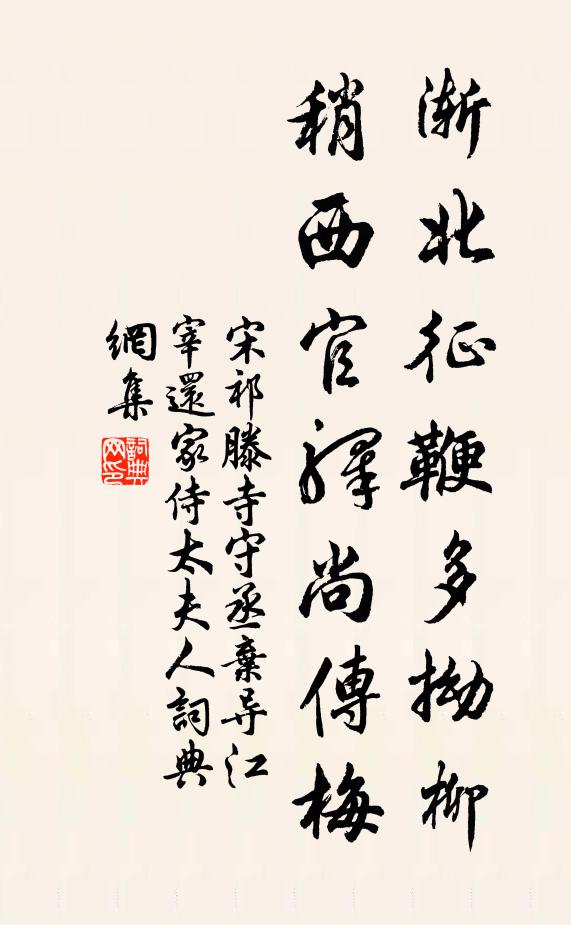 漸北征鞭多拗柳
稍西官驛尚傳梅
宋祁滕寺守丞棄导江
宰還家侍太夫人詞典
網集
詞典
网印